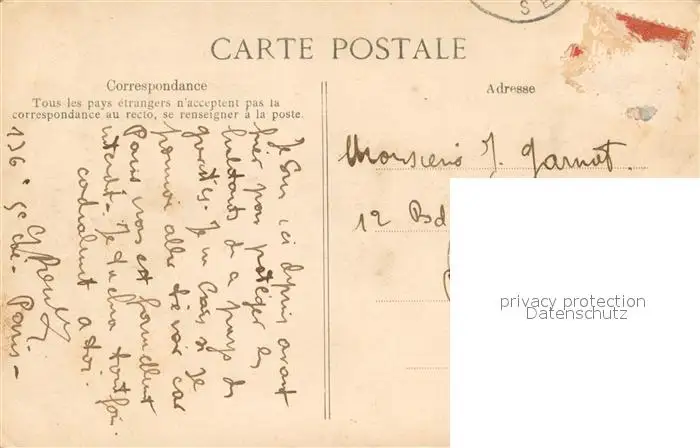 SE
CARTE POSTALE
Correspondance
Tous les pays étrangers n'acceptent pas la
correspondance au recto, se renseigner à la poste.
Adresse
Je suis ici depuis avant
hier pour protéger les
habitants de ce pays de
Je ne crois si je
pouvoir aller te voir car
Paris nous est formellement
interdit. Je tâcherai toutefois.
cordialement à toi.
136e 5e Cie - Paris -
Monsieur J. Garnot.
12 Bd
privacy protection
Datenschutz